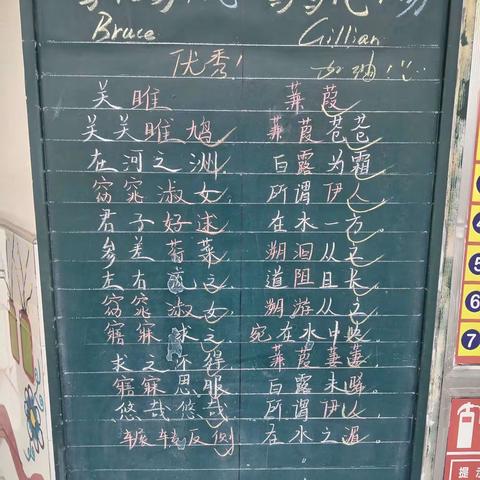 Bruce
优秀!
关睢
关关睢鸠
在河之洲
窈窕淑女
君子好逑
参差荇菜
左右流之
窈窕淑女
寤寐求之
求之不得
寤寐思服
悠哉悠哉
辗转反侧
Gillian
加油!
蒹葭
蒹葭苍苍
白露为霜
所谓伊人
在水一方
溯洄从之
道阻且长
溯游从之
宛在水中央
蒹葭萋萋
白露未晞
所谓伊人
在水之湄
4
5
6
7
提